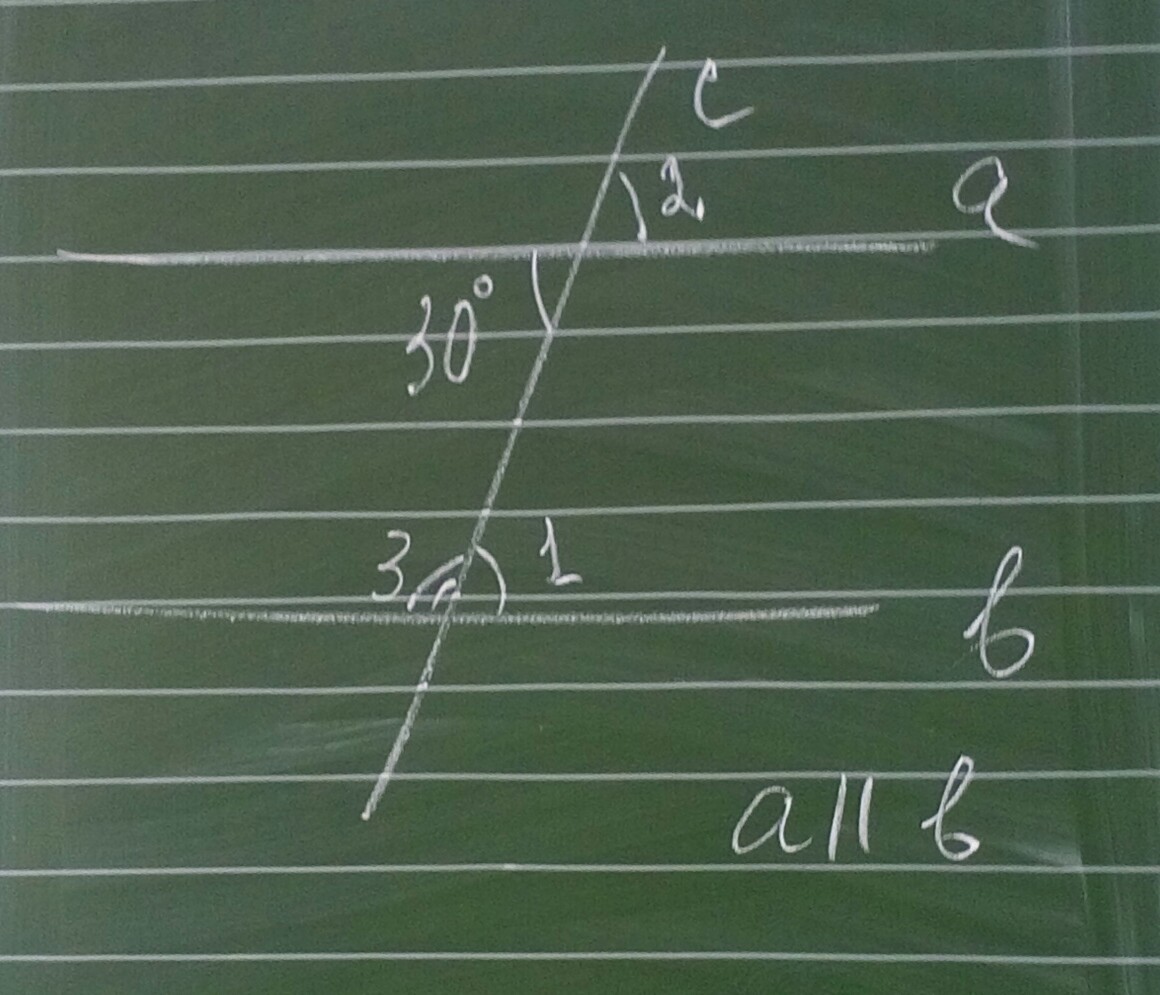 c
2
a
30°
3 1
b
a || b